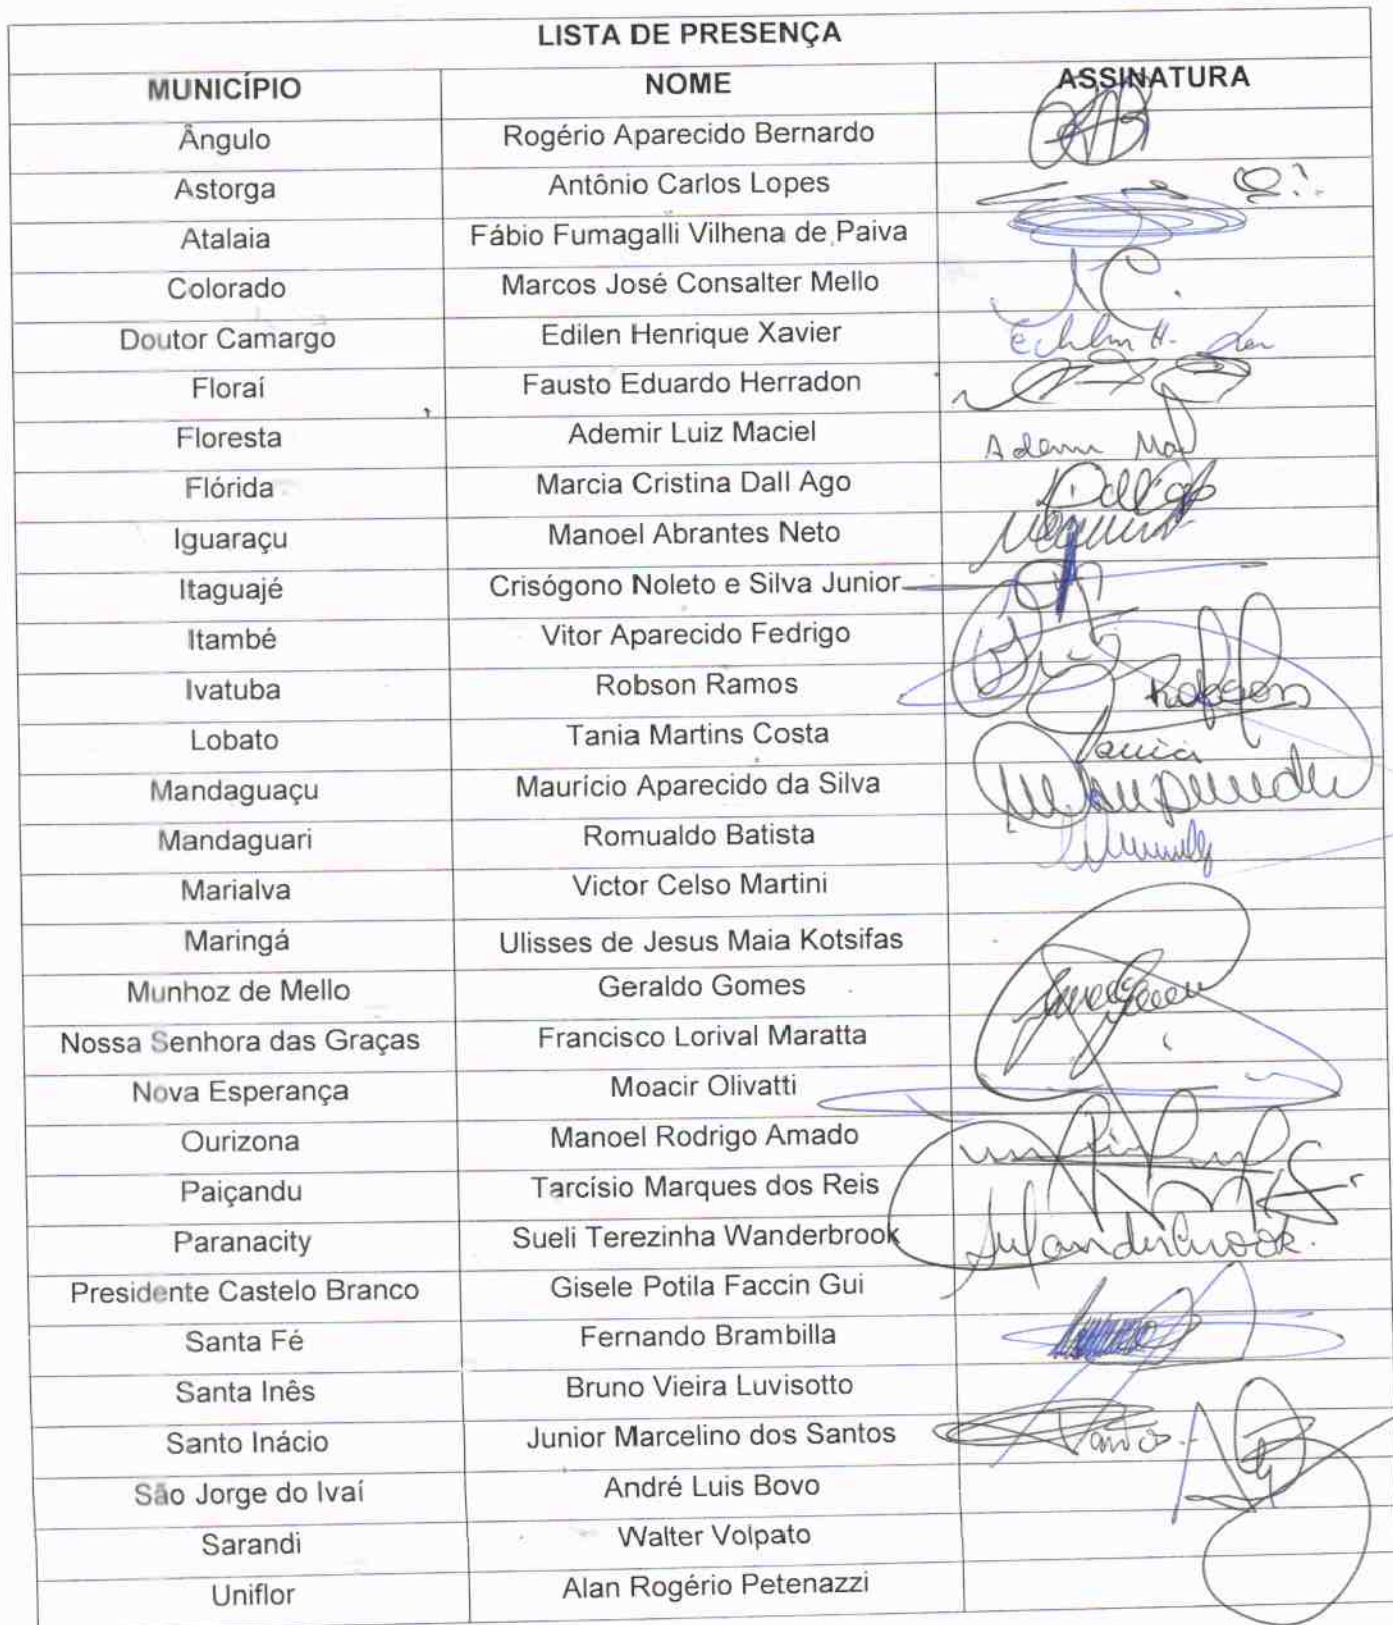 LISTA DE PRESENÇA
MUNICÍPIO NOME ASSINATURA
Ângulo Rogério Aparecido Bernardo
Astorga Antônio Carlos Lopes
Atalaia Fábio Fumagalli Vilhena de Paiva
Colorado Marcos José Consalter Mello
Doutor Camargo Edilen Henrique Xavier
Floraí Fausto Eduardo Herradon
Floresta Ademir Luiz Maciel
Flórida Marcia Cristina Dall Ago
Iguaraçu Manoel Abrantes Neto
Itaguajé Crisógono Noleto e Silva Junior
Itambé Vitor Aparecido Fedrigo
Ivatuba Robson Ramos Robson
Lobato Tania Martins Costa Tania
Mandaguaçu Maurício Aparecido da Silva
Mandaguari Romualdo Batista
Marialva Victor Celso Martini
Maringá Ulisses de Jesus Maia Kotsifas
Munhoz de Mello Geraldo Gomes
Nossa Senhora das Graças Francisco Lorival Maratta
Nova Esperança Moacir Olivatti
Ourizona Manoel Rodrigo Amado
Paiçandu Tarcísio Marques dos Reis
Paranacity Sueli Terezinha Wanderbrook
Presidente Castelo Branco Gisele Potila Faccin Gui
Santa Fé Fernando Brambilla
Santa Inês Bruno Vieira Luvisotto
Santo Inácio Junior Marcelino dos Santos
São Jorge do Ivaí André Luis Bovo
Sarandi Walter Volpato
Uniflor Alan Rogério Petenazzi